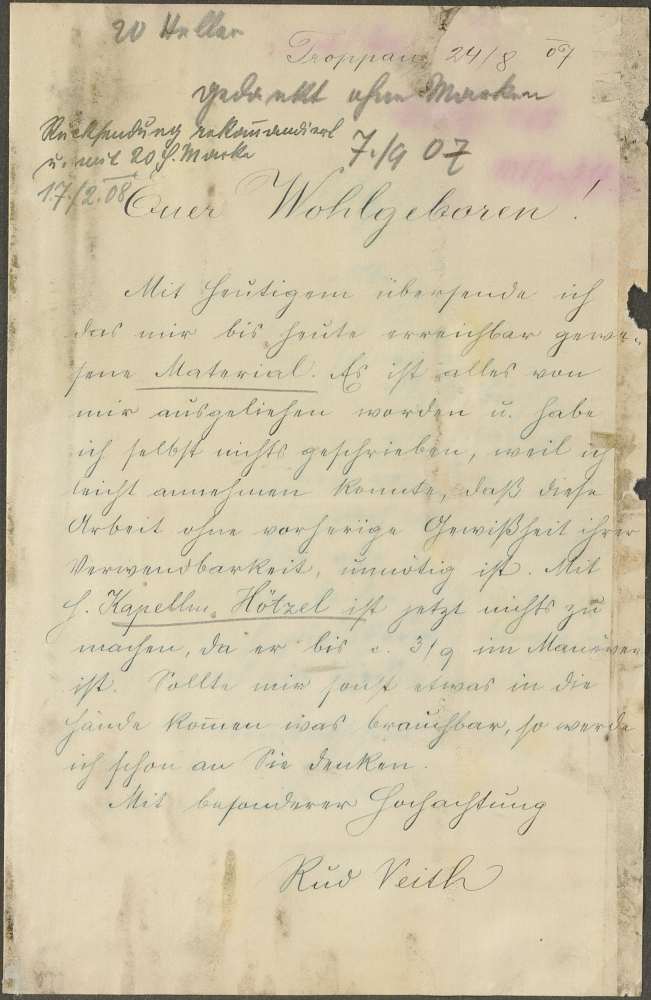 20 Heller
Troppau, 24/8 07
gedankt ohne Marken
7./9 07
Rücksendung rekomandiert
u. mit 20 h. Marke
17./2. 08
Euer Wohlgeboren!
Mit Heutigem übersende ich
das mir bis heute erreichbar gewe-
sene Material. Es ist alles von
mir ausgeliehen worden u. habe
ich selbst nichts geschrieben, weil ich
leicht annehmen konnte, daß diese
Arbeit ohne vorherige Gewißheit ihrer
Verwendbarkeit, unnötig ist. Mit
H. Kapellm. Hötzel ist jetzt nichts zu
machen, da er bis c. 3/9 im Manöver
ist. Sollte mir sonst etwas in die
Hände kom̄en was brauchbar, so werde
ich schon an Sie denken.
Mit besonderer Hochachtung
Rud Veith